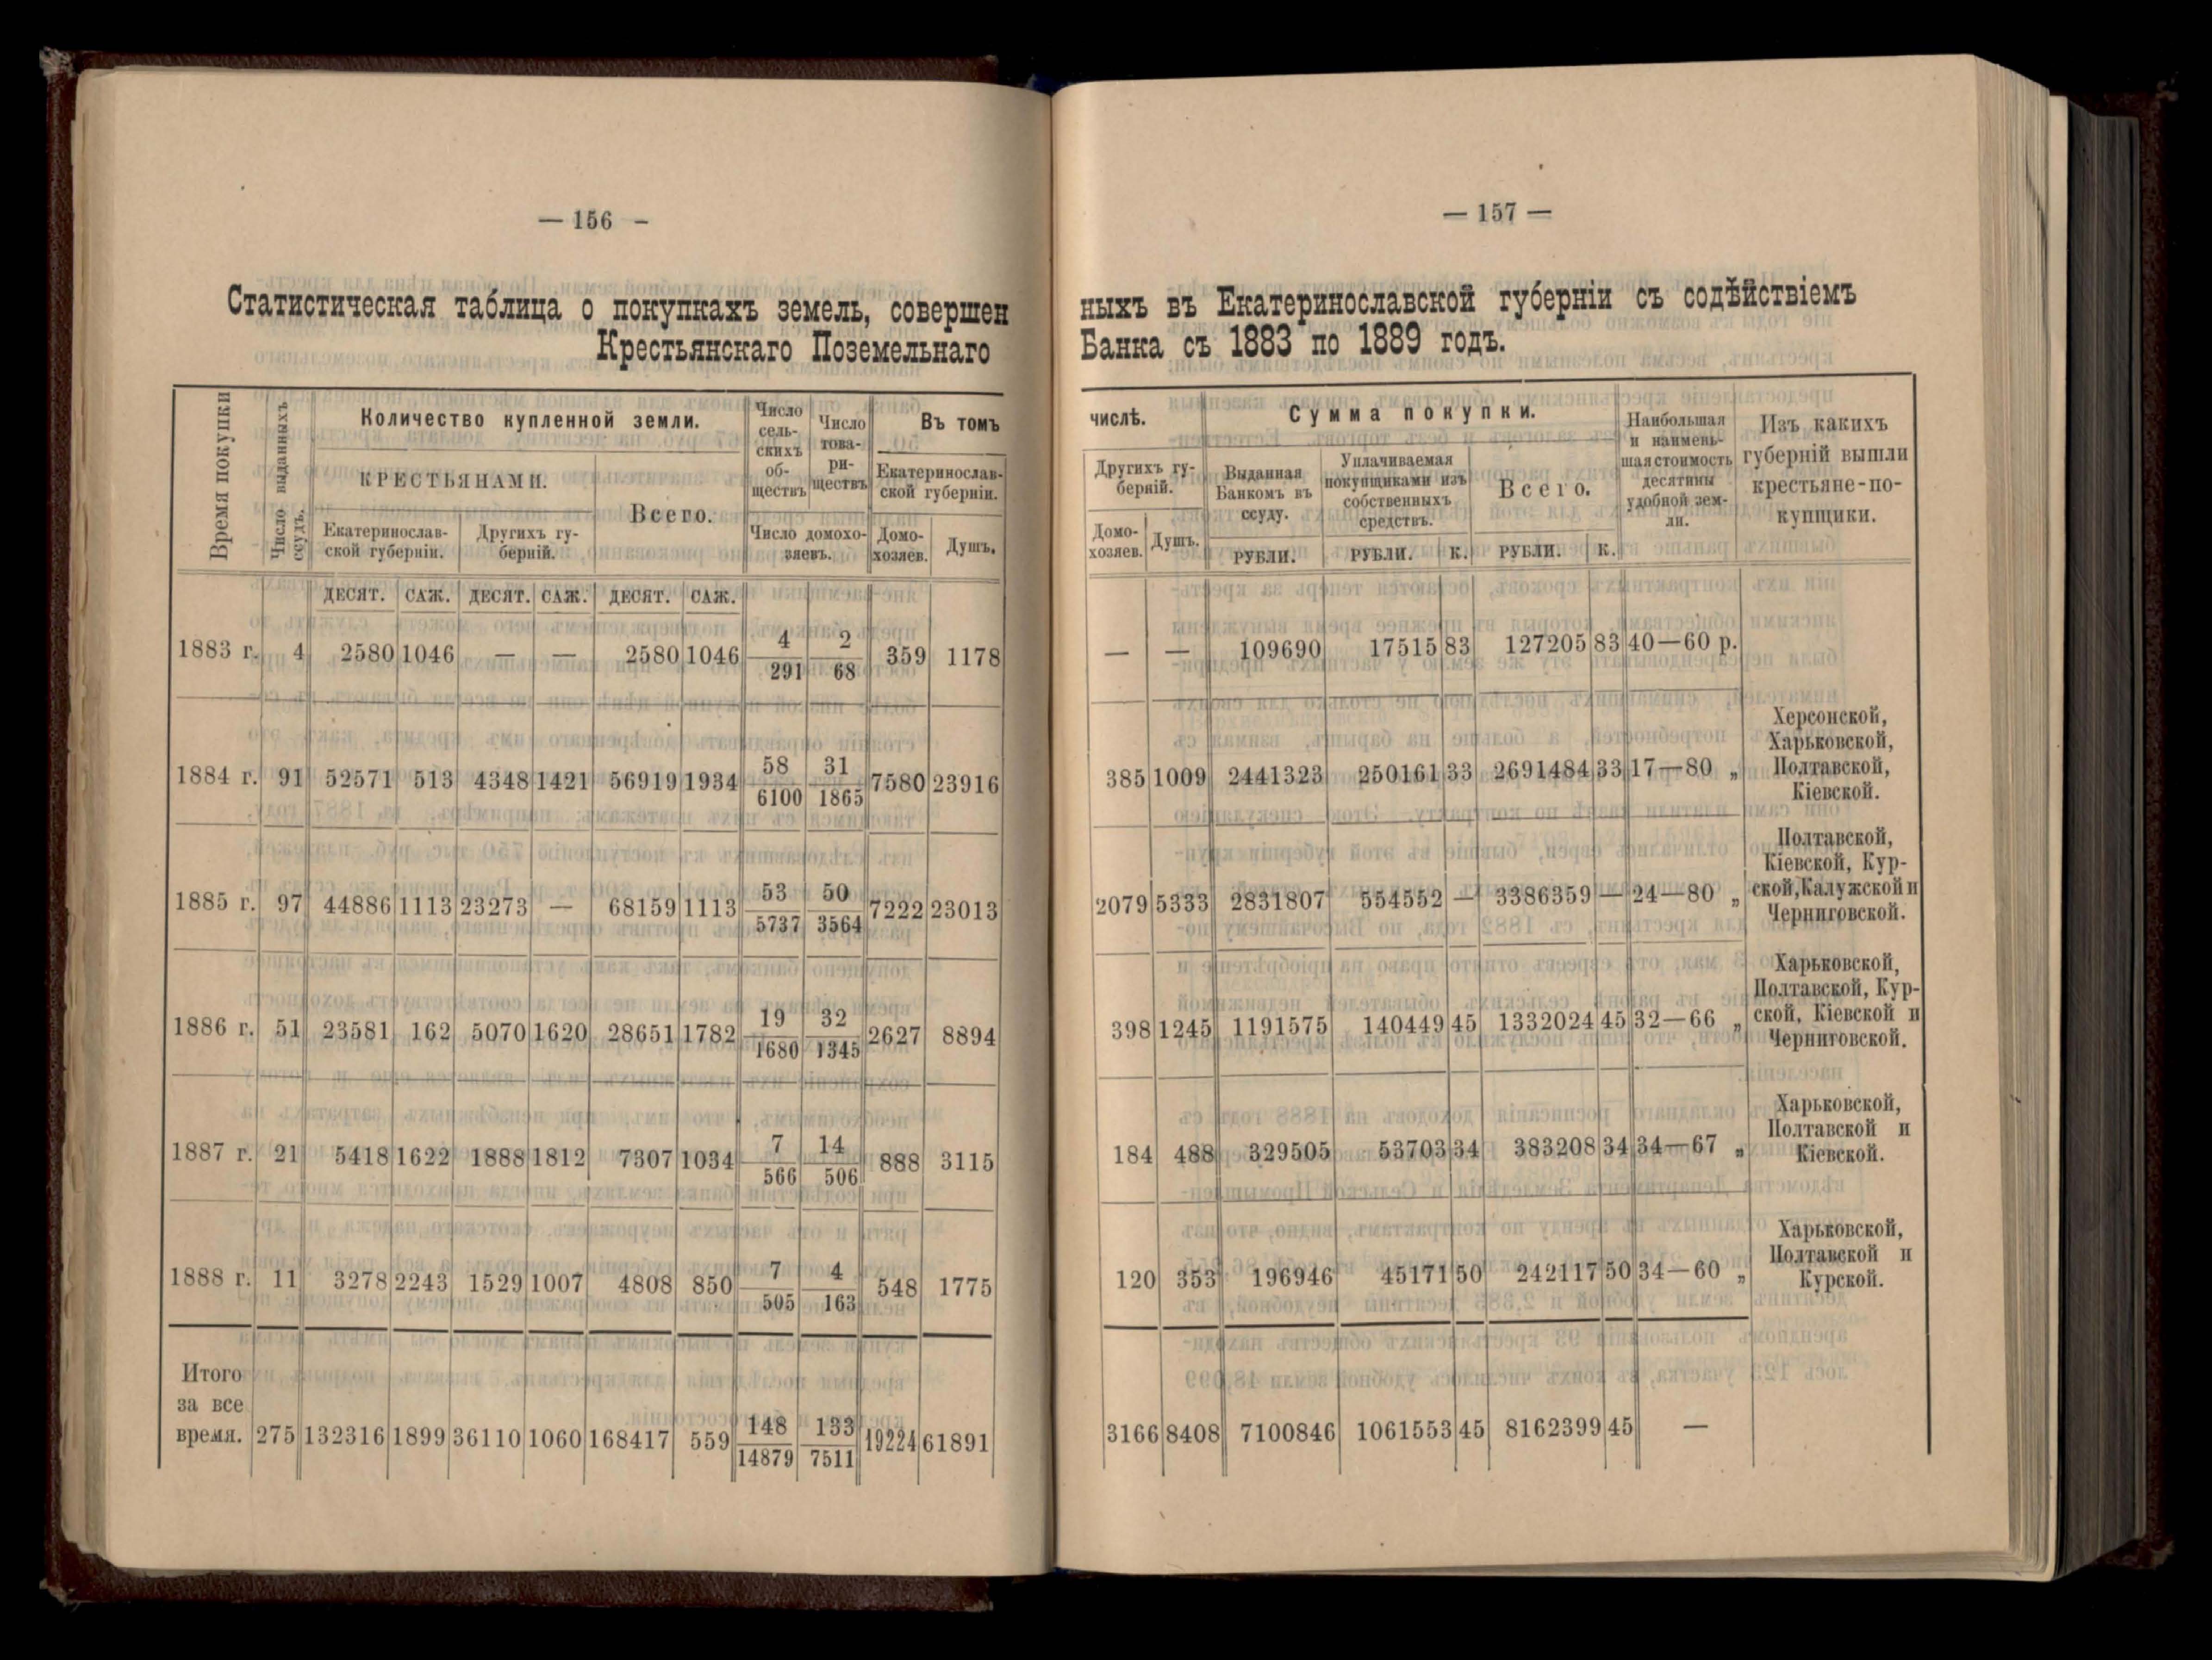 — 156 –
Статистическая таблица о покупкахъ земель, совершен
Крестьянскаго Поземельнаго
Время покупки
Число выданныхъ
ссудъ.
Количество купленной земли.
КРЕСТЬЯНАМИ.
Екатеринослав-
ской губерніи.
Другихъ гу-
берній.
Всего.
Число
сель-
скихъ
об-
ществъ
Число
това-
ри-
ществъ
Число домохо-
зяевъ.
Въ томъ
Екатеринослав-
ской губерніи.
Домо-
хозяев.
Душъ.
ДЕСЯТ. САЖ. ДЕСЯТ. САЖ. ДЕСЯТ. САЖ.
1883 г. 4 2580 1046 — — 2580 1046 4/291 2/68 359 1178
1884 г. 91 52571 513 4348 1421 56919 1934 58/6100 31/1865 7580 23916
1885 г. 97 44886 1113 23273 — 68159 1113 53/5737 50/3564 7222 23013
1886 г. 51 23581 162 5070 1620 28651 1782 19/1680 32/1345 2627 8894
1887 г. 21 5418 1622 1888 1812 7307 1034 7/566 14/506 888 3115
1888 г. 11 3278 2243 1529 1007 4808 850 7/505 4/163 548 1775
Итого
за все
время. 275 132316 1899 36110 1060 168417 559 148/14879 133/7511 19224 61891
— 157 —
ныхъ въ Екатеринославской губерніи съ содѣйствіемъ
Банка съ 1883 по 1889 годъ.
числѣ.
Другихъ гу-
берній.
Домо-
хозяев.
Душъ.
Сумма покупки.
Выданная
Банкомъ въ
ссуду.
РУБЛИ.
Уплачиваемая
покупщиками изъ
собственныхъ
средствъ.
РУБЛИ. К.
Всего.
РУБЛИ. К.
Наибольшая
и наимень-
шая стоимость
десятины
удобной зем-
ли.
Изъ какихъ
губерній вышли
крестьяне-по-
купщики.
— — 109690 17515 83 127205 83 40—60 р.
385 1009 2441323 250161 33 2691484 33 17—80 „
Херсонской,
Харьковской,
Полтавской,
Кіевской.
2079 5333 2831807 554552 — 3386359 — 24—80 „
Полтавской,
Кіевской, Кур-
ской, Калужской и
Черниговской.
398 1245 1191575 140449 45 1332024 45 32—66 „
Харьковской,
Полтавской, Кур-
ской, Кіевской и
Черниговской.
184 488 329505 53703 34 383208 34 34—67 „
Харьковской,
Полтавской и
Кіевской.
120 353 196946 45171 50 242117 50 34—60 „
Харьковской,
Полтавской и
Курской.
3166 8408 7100846 1061553 45 8162399 45 —